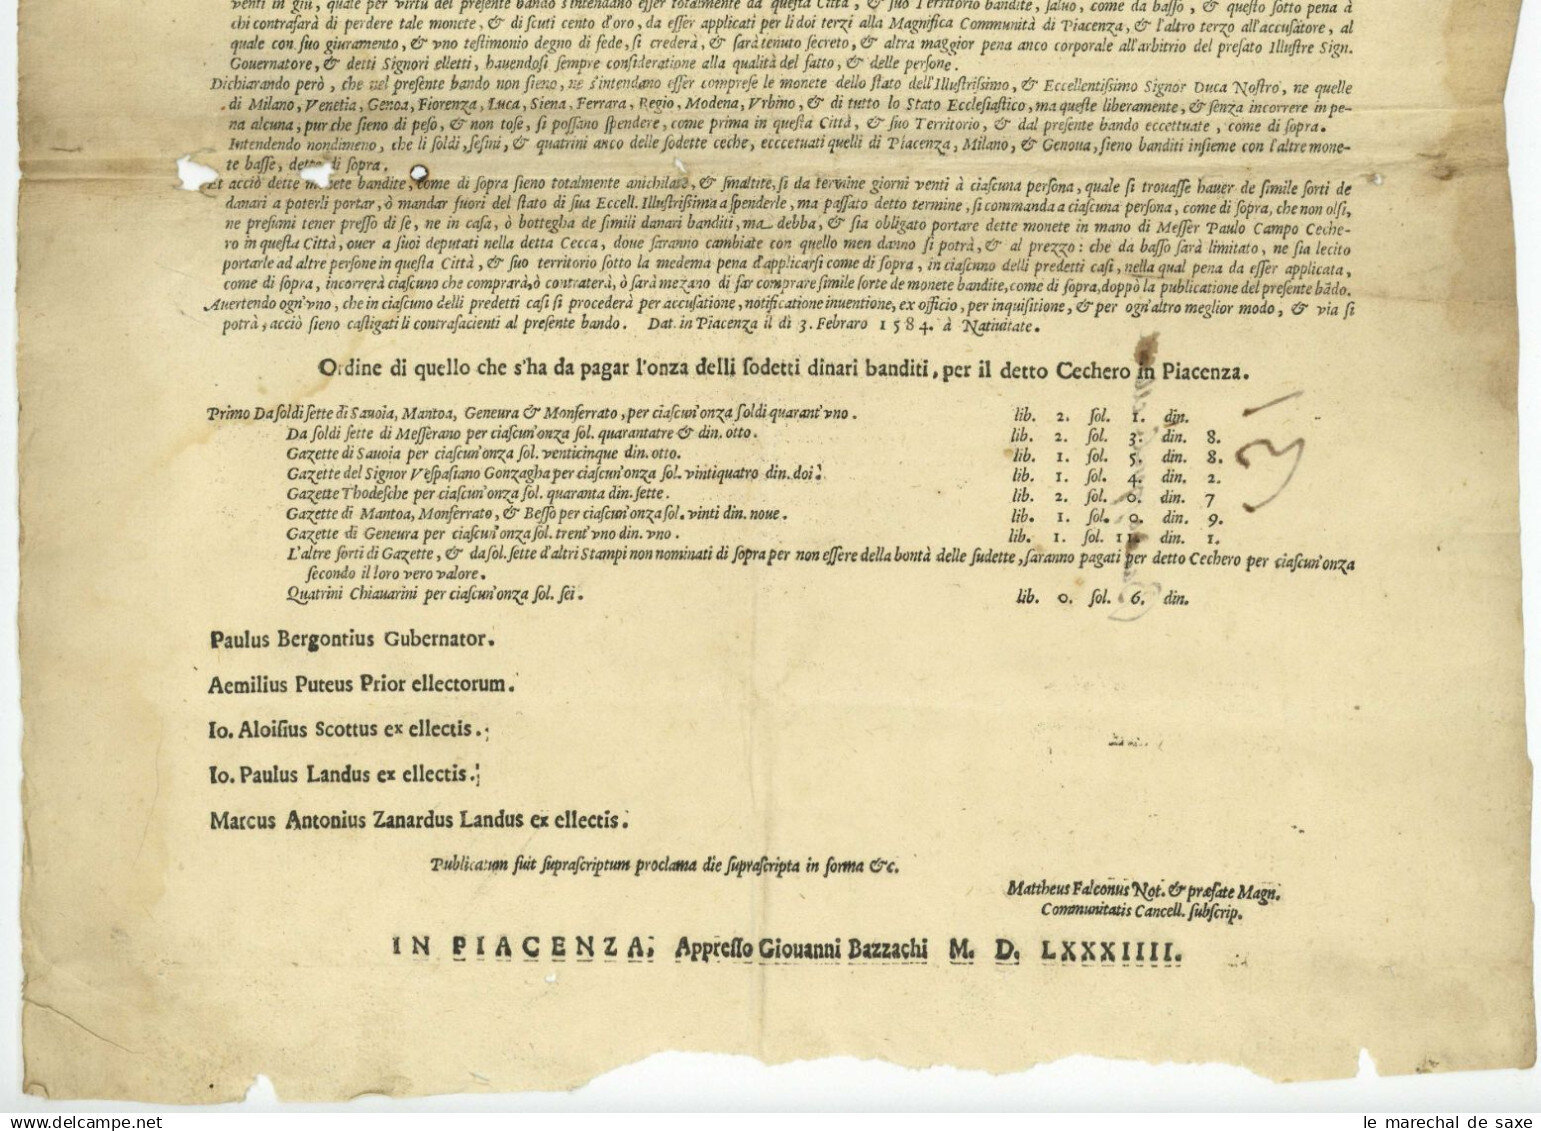 venti in giù, quale per virtù del presente bando s'intendano esser totalmente da questa Città, & suo Territorio bandite, saluo, come da basso, & questo sotto pena à
chi contrafarà di perdere tale monete, & di scuti cento d'oro, da esser applicati per li doi terzi alla Magnifica Communità di Piacenza, & l'altro terzo all'accusatore, al
quale con suo giuramento, & vno testimonio degno di fede, si crederà, & sarà tenuto secreto, & altra maggior pena anco corporale all'arbitrio del prefato Illustre Sign.
Gouernatore, & detti Signori elletti, hauendosi sempre consideratione alla qualità del fatto, & delle persone.
Dichiarando però, che nel presente bando non sieno, ne s'intendano esser comprese le monete dello stato dell'Illustrissimo, & Eccellentissimo Signor Duca Nostro, ne quelle
di Milano, Venetia, Genoa, Fiorenza, Luca, Siena, Ferrara, Regio, Modena, Vrbino, & di tutto lo Stato Ecclesiastico, ma queste liberamente, & senza incorrere in pe-
na alcuna, pur che sieno di peso, & non tose, si possano spendere, come prima in questa Città, & suo Territorio, & dal presente bando eccettuate, come di sopra.
Intendendo nondimeno, che li soldi, sesini, & quatrini anco delle sodette ceche, ecccetuati quelli di Piacenza, Milano, & Genoua, sieno banditi insieme con l'altre mone-
te basse, dette di sopra.
Et acciò dette monete bandite, come di sopra sieno totalmente anichilate, & smaltite, si da termine giorni venti à ciascuna persona, quale si trouasse hauer de simile sorti de
danari a poterli portar, ò mandar fuori del stato di sua Eccell. Illustrissima a spenderle, ma passato detto termine, si commanda a ciascuna persona, come di sopra, che non olsi,
ne presumi tener presso di se, ne in casa, ò bottegha de simili danari banditi, ma debba, & sia obligato portare dette monete in mano di Messer Paulo Campo Ceche-
ro in questa Città, ouer a suoi deputati nella detta Cecca, doue saranno cambiate con quello men danno si potrà, & al prezzo: che da basso sarà limitato, ne sia lecito
portarle ad altre persone in questa Città, & suo territorio sotto la medema pena d'applicarsi come di sopra, in ciascuno delli predetti casi, nella qual pena da esser applicata,
come di sopra, incorrerà ciascuno che comprarà, ò contraterà, ò sarà mezano di far comprare simile sorte de monete bandite, come di sopra, doppò la publicatione del presente bãdo.
Auertendo ogn'vno, che in ciascuno delli predetti casi si procederà per accusatione, notificatione inuentione, ex officio, per inquisitione, & per ogn'altro meglior modo, & via si
potrà, acciò sieno castigati li contrafacienti al presente bando. Dat. in Piacenza il dì 3. Febraro 1584. à Natiuitate.
Ordine di quello che s'ha da pagar l'onza delli sodetti dinari banditi, per il detto Cechero in Piacenza.
Primo Da soldi sette di Sauoia, Mantoa, Geneura & Monferrato, per ciascun'onza soldi quarant'vno. lib. 2. sol. 1. din.
Da soldi sette di Messerano per ciascun'onza sol. quarantatre & din. otto. lib. 2. sol. 3. din. 8.
Gazette di Sauoia per ciascun'onza sol. venticinque din. otto. lib. 1. sol. 5. din. 8.
Gazette del Signor Vespasiano Gonzagha per ciascun'onza sol. vintiquatro din. doi. lib. 1. sol. 4. din. 2.
Gazette Thodesche per ciascun'onza sol. quaranta din. sette. lib. 2. sol. 0. din. 7
Gazette di Mantoa, Monferrato, & Besso per ciascun'onza sol. vinti din. noue. lib. 1. sol. 0. din. 9.
Gazette di Geneura per ciascun'onza sol. trent'vno din. vno. lib. 1. sol. 11. din. 1.
L'altre sorti di Gazette, & da sol. sette d'altri Stampi non nominati di sopra per non essere della bontà delle sudette, saranno pagati per detto Cechero per ciascun'onza
secondo il loro vero valore.
Quatrini Chiauarini per ciascun'onza sol. sei. lib. 0. sol. 6. din.
Paulus Bergontius Gubernator.
Aemilius Puteus Prior ellectorum.
Io. Aloisius Scottus ex ellectis.
Io. Paulus Landus ex ellectis.
Marcus Antonius Zanardus Landus ex ellectis.
Publicatum fuit suprascriptum proclama die suprascripta in forma &c.
Mattheus Falconus Not. & præfate Magn.
Communitatis Cancell. subscrip.
IN PIACENZA, Appresso Giouanni Bazzachi M. D. LXXXIIII.
le marechal de saxe